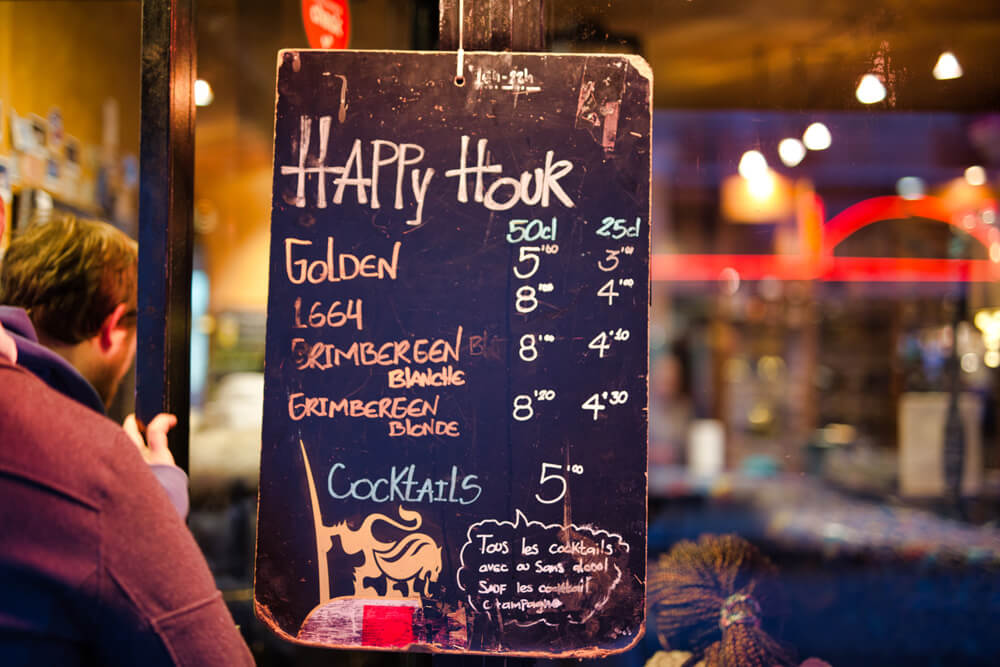 16h-22h
HAPPy HouR
50cl 25cl
GoLDEN 5'00 3'00
1664 8'00 4'00
GRIMBERGEN 8'00 4'10
BLANCHE
GRIMBERGEN 8'20 4'30
BLONDE
CockTAiLS 5'00
Tous les cocktails
avec ou sans alcool
SAUF les cocktail
champagne